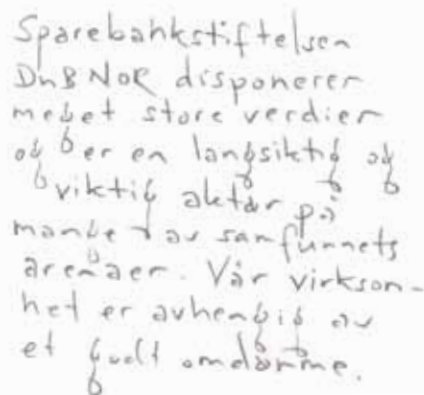 Sparebankstiftelsen
DnB NOR disponerer
meget store verdier
og er en langsiktig og
viktig aktør på
mange av samfunnets
arenaer. Vår virksom-
het er avhengig av
et godt omdømme.